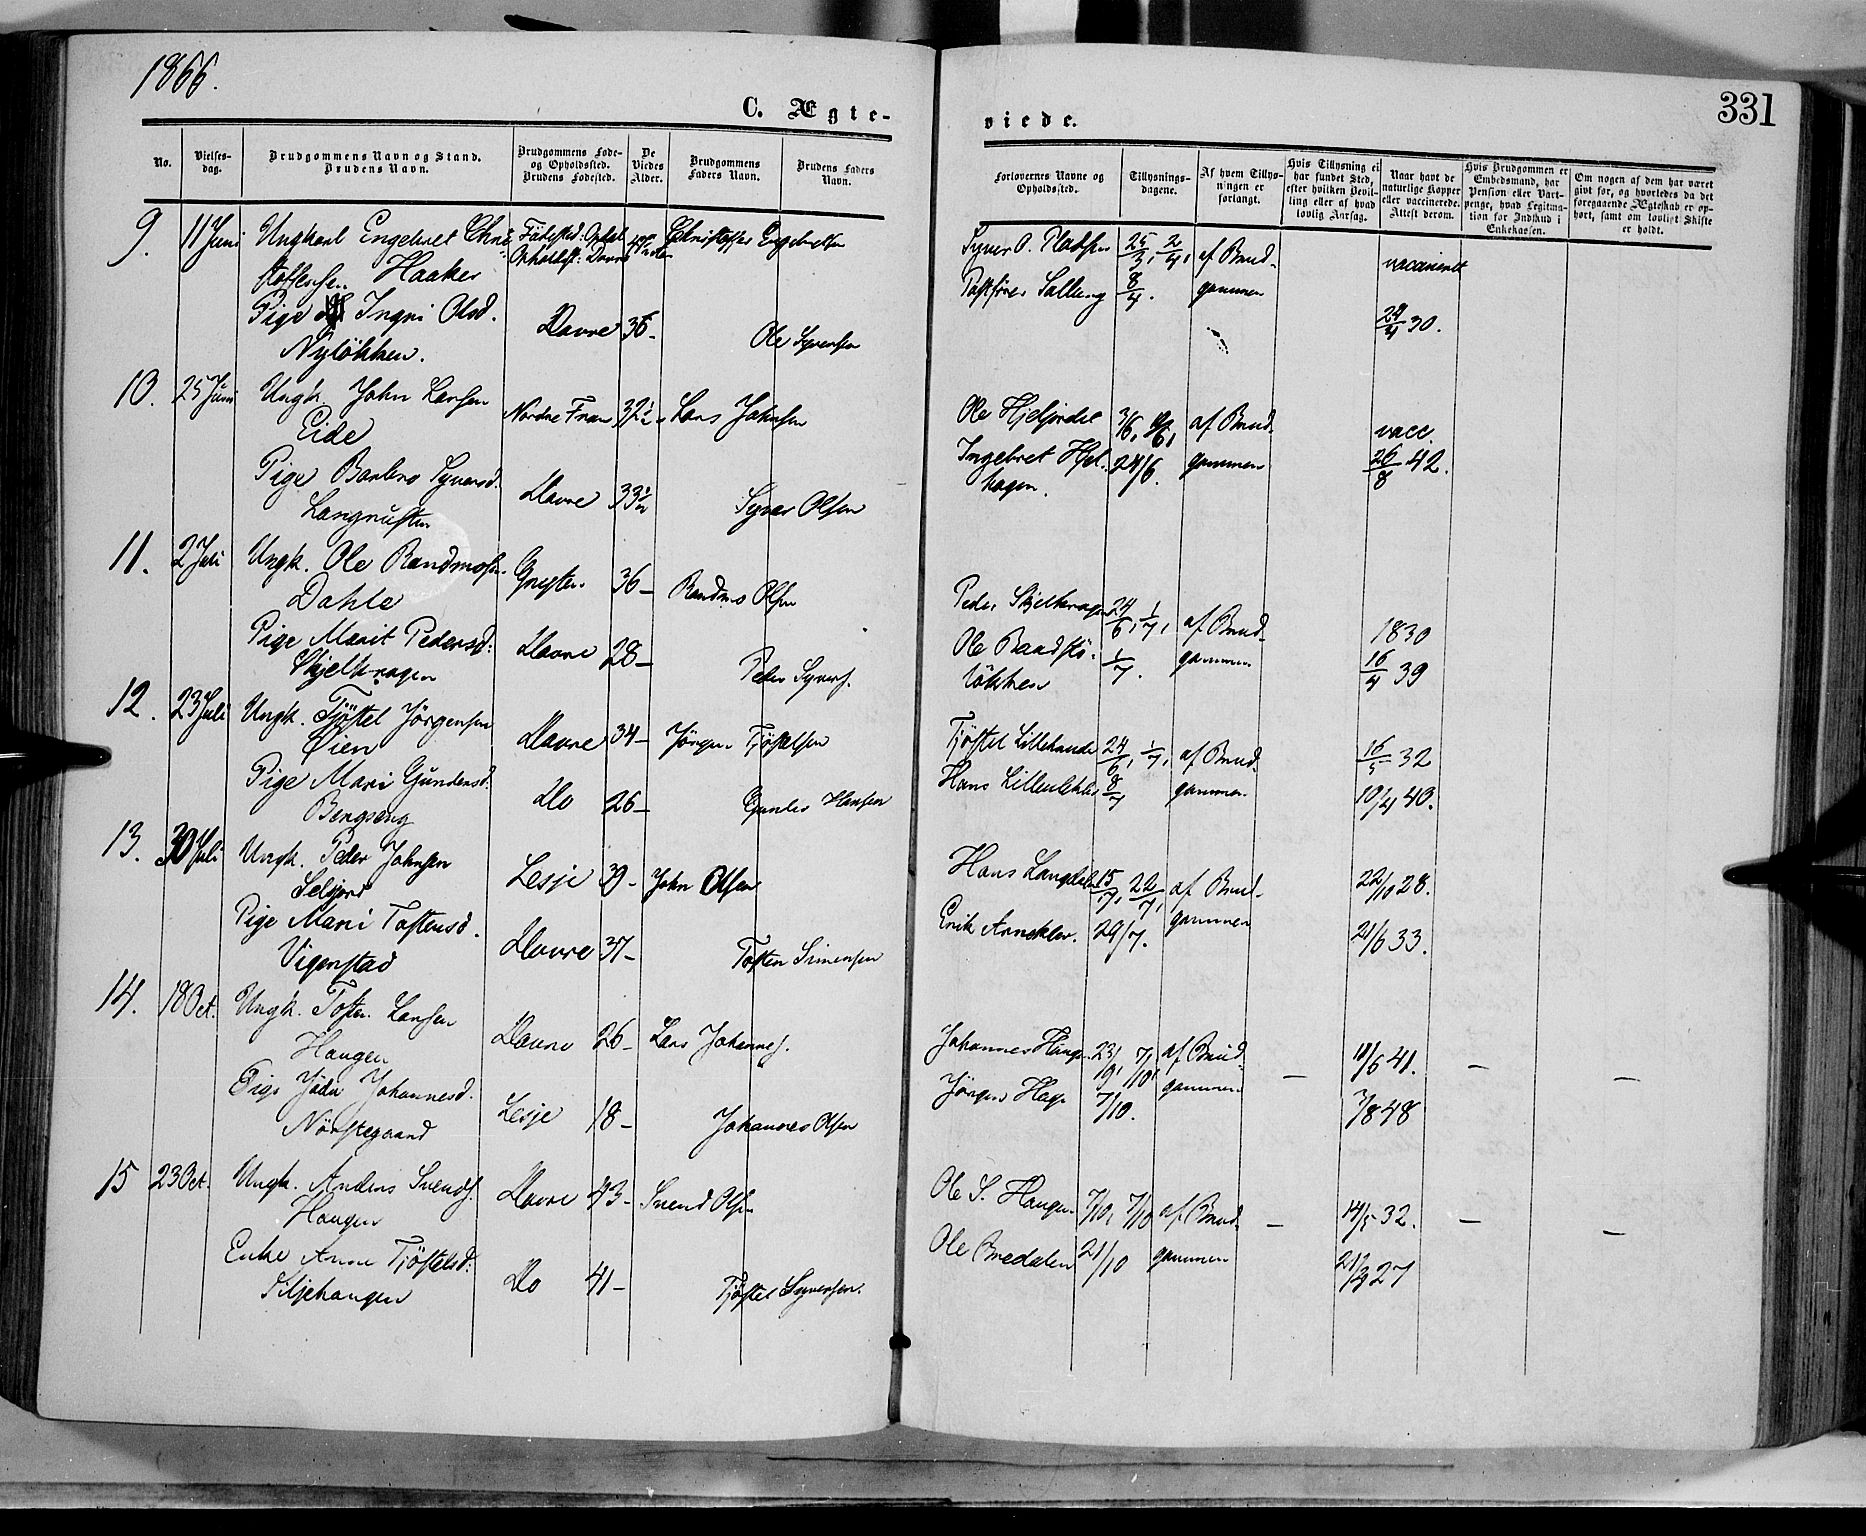 1866.
331
C. Ægte-
viede.
No.
Vielses-
dag.
Brudgommens Navn og Stand.
Brudens Navn.
Brudgommens Føde-
og Opholdssted.
Brudens Fødested.
De
Viedes
Alder.
Brudgommens
Faders Navn.
Brudens Faders
Navn.
Forlovernes Navne og
Opholdssted.
Tillysnings-
dagene.
Af hvem Tillys-
ningen er
forlangt.
Hvis Tillysning ei
har fundet Sted,
efter hvilken Bevil-
ling eller af hvad
lovlig Aarsag.
Naar havt de
naturlige Kopper
eller vaccinerede.
Attest derom.
Hvis Brudgommen er
Embedsmand, har
Pension eller Vart-
penge, hvad Legitima-
tion for Indskud i
Enkekassen.
Om nogen af dem har været
gift før, og hvorledes da det
foregaaende Ægteskab er op-
hørt, samt om lovligt Skifte
er holdt.
9. 11 Juni Ungkarl Engebret Chri-
stoffersen Haaker
Fødested: Opdal
Opholdst: Dovre
Christoffer Engebretsen
Syver O. 25/3, 2/4, af Brud-
8/4. gommen
vaccineret
Pige Ingri Olsd.
Nyløkken.
Dovre 36- Ole Syversen
24/4 30.
10. 25 Juni Ungk. John Larsen
Eide
Nordre Fron 32½ Lars Johnsen
Ole Hjelfordet 3/6, af Brud-
Ingebret Hjel-
hagen. 24/6. gommen
vacc.
26/8 42.
Pige Barbro Syversd.
Langrusten
Dovre 33½ Syver Olsen
11. 2 Juli Ungk. Ole Randmosen
Dahle
36- Olsen
Peder Skjelkragen 24/6, 1/7, af Brud-
Ole
løkken 1/7. gommen
1830
16/4 39
Pige Marit Pedersd.
Skjelkragen
Dovre 28- Peder Syvers.
12. 23 Juli Ungk. Tjøstel Jörgensen
Øien
Dovre 34- Jörgen Tjøstelsen
Tjøstel 24/6, 1/7, af Brud-
Hans 8/7 gommen
16/5 32
10/4 40.
Pige Mari Gundersd.
Do 26- Hansen
13. 30 Juli Ungk. Peder Johnsen
Lesje 39- John Olsen
Hans 15/7, 22/7, af Brud-
Erik 29/7. gommen
28.
21/6 33.
Pige Mari Tostensd.
Vigenstad
Dovre 37- Tosten Simensen
14. 18 Oct. Ungk. Tosten Larsen
Haugen
Dovre 26- Lars Johannes.
Johannes Hage 23/9, 7/10, af Brud-
Jörgen Hage 7/10. gommen
- 18/6 41. - -
7/8 48
Pige Johannesd.
Nörstegaard
Lesje 18- Johannes Olsen
15 23 Oct. Ungk. Anders Svends.
Haugen
Dovre 43- Svend Olsen
Ole S. Haugen 7/10, 7/10 af Brud-
Ole Bredalen 21/10 gommen
- 14/5 32. - -
27
Enke Anne Tjøstelsd.
Siljehaugen
Do 41- Tjøstel Syversen.